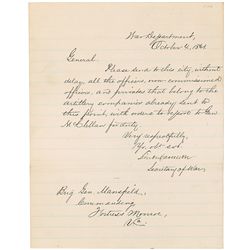 War Department,
October 4, 1861
General
Please send to this city, without
delay, all the officers, non commissioned
officers, and privates that belong to the
artillery companies already sent to
this point, with orders to report to Gen
McClellan for duty.
Very respectfully,
Yr. obt svt
Simon Cameron
Secretary of War,
Brig Gen. Mansfield,
Commanding
Fortress Monroe,
Va